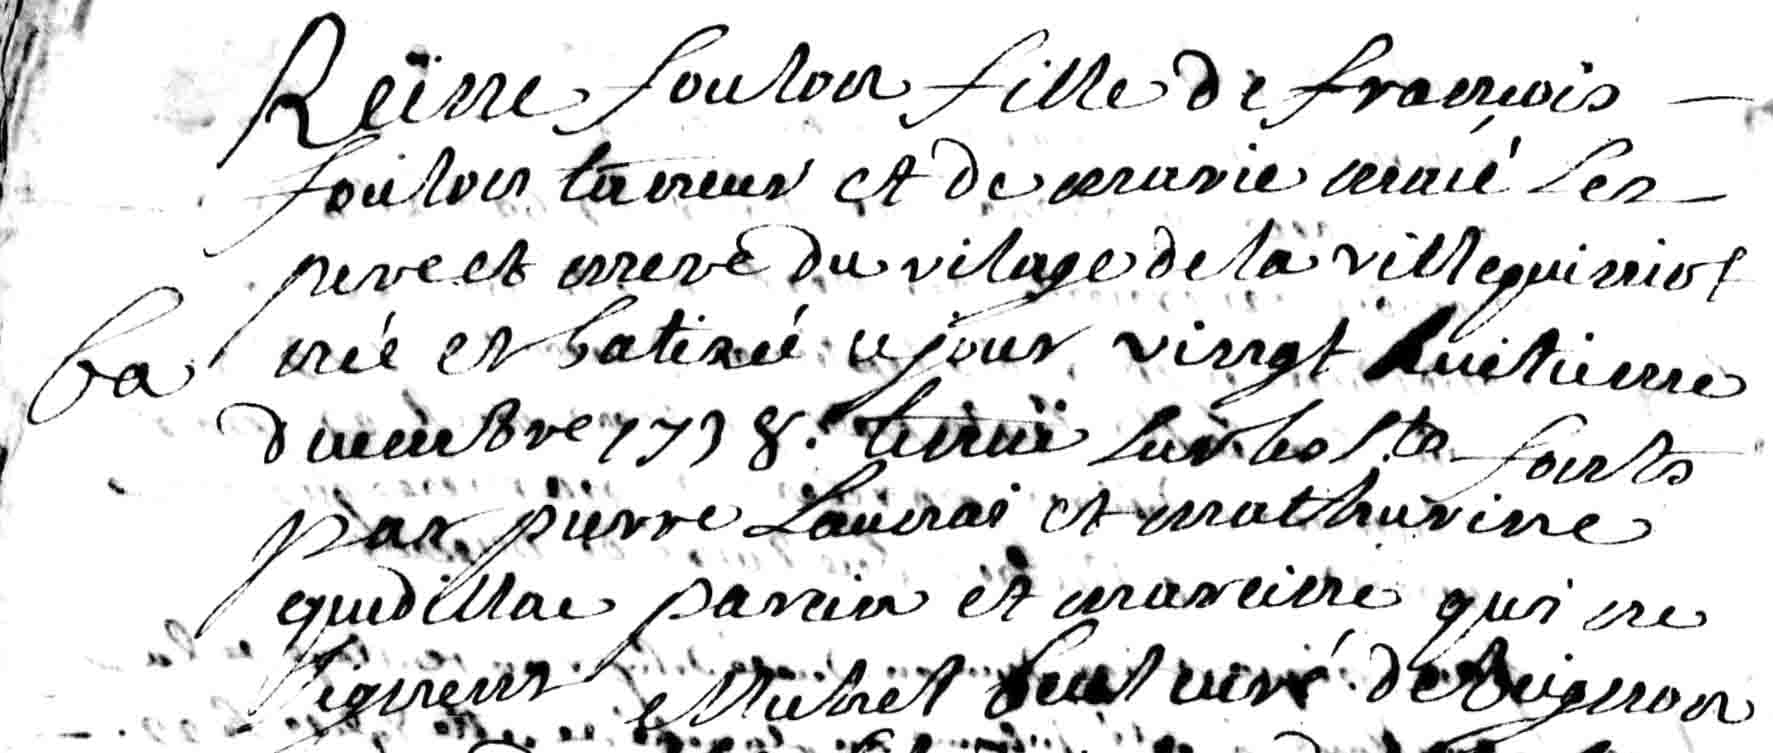 Reïne foulon fille de francois
foulon taneur et de marie maié ses
pere et mere du vilage de la villeguiniot
ba née et batizé ce jour vingt huitieme
decembre 1738. tenuë sur les sts fonts
par pierre Launai et mathurine
quedillac parein et mareine qui ne
signent Michel curé de